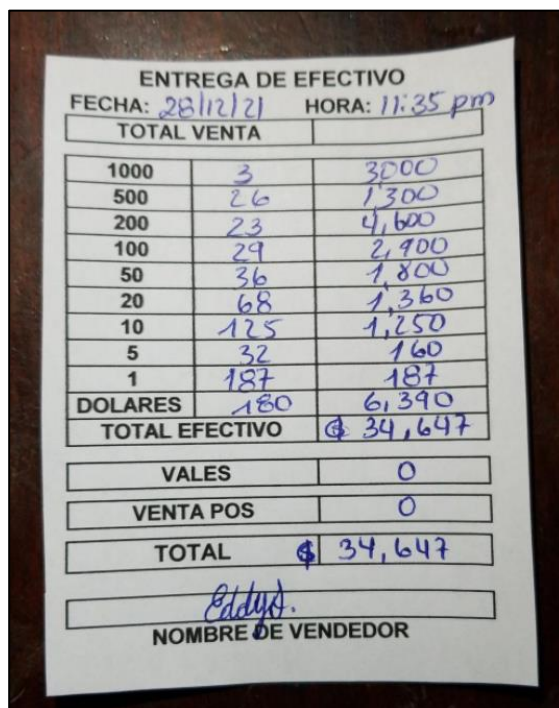 ENTREGA DE EFECTIVO
FECHA: 28/12/21 HORA: 11:35 pm
TOTAL VENTA
1000 3 3000
500 26 1,300
200 23 4,600
100 29 2,900
50 36 1,800
20 68 1,360
10 125 1,250
5 32 160
1 187 187
DOLARES 180 6,390
TOTAL EFECTIVO $ 34,647
VALES 0
VENTA POS 0
TOTAL $ 34,647
EddyA.
NOMBRE DE VENDEDOR